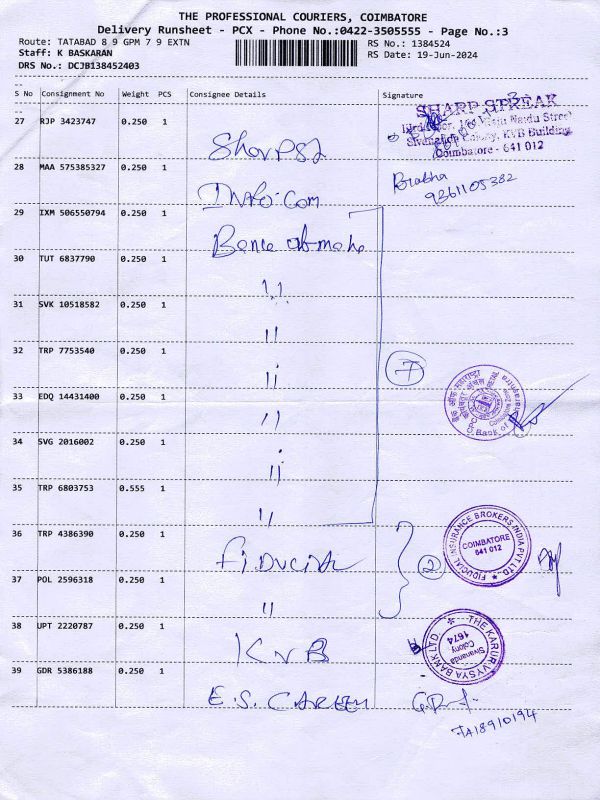 THE PROFESSIONAL COURIERS, COIMBATORE
Delivery Runsheet - PCX - Phone No.:0422-3505555 - Page No.:3
Route: TATABAD 8 9 GPM 7 9 EXTN
RS No.: 1384524
Staff: K BASKARAN
RS Date: 19-Jun-2024
DRS No.: DCJB138452403
S No Consignment No Weight PCS Consignee Details Signature
27 RJP 3423747 0.250 1
SHARP STREAK
Naidu Street
Sivananda Colony, KVB Building
Coimbatore - 641 012
28 MAA 575385327 0.250 1
Prabha
9361105382
Info.com
29 IXM 506550794 0.250 1
30 TUT 6837790 0.250 1
"
31 SVK 10518582 0.250 1
"
32 TRP 7753540 0.250 1
7
"
33 EDQ 14431400 0.250 1
बैंक ऑफ महाराष्ट्र
Bank of Maharashtra
"
34 SVG 2016002 0.250 1
"
35 TRP 6803753 0.555 1
"
36 TRP 4386390 0.250 1
Fiducial
2
FIDUCIAL INSURANCE BROKERS INDIA PVT LTD
COIMBATORE
641 012
37 POL 2596318 0.250 1
"
38 UPT 2220787 0.250 1
KVB
THE KARUR VYSYA BANK LTD
Sivananda
Colony
1674
39 GDR 5386188 0.250 1
E.S. CAREEN